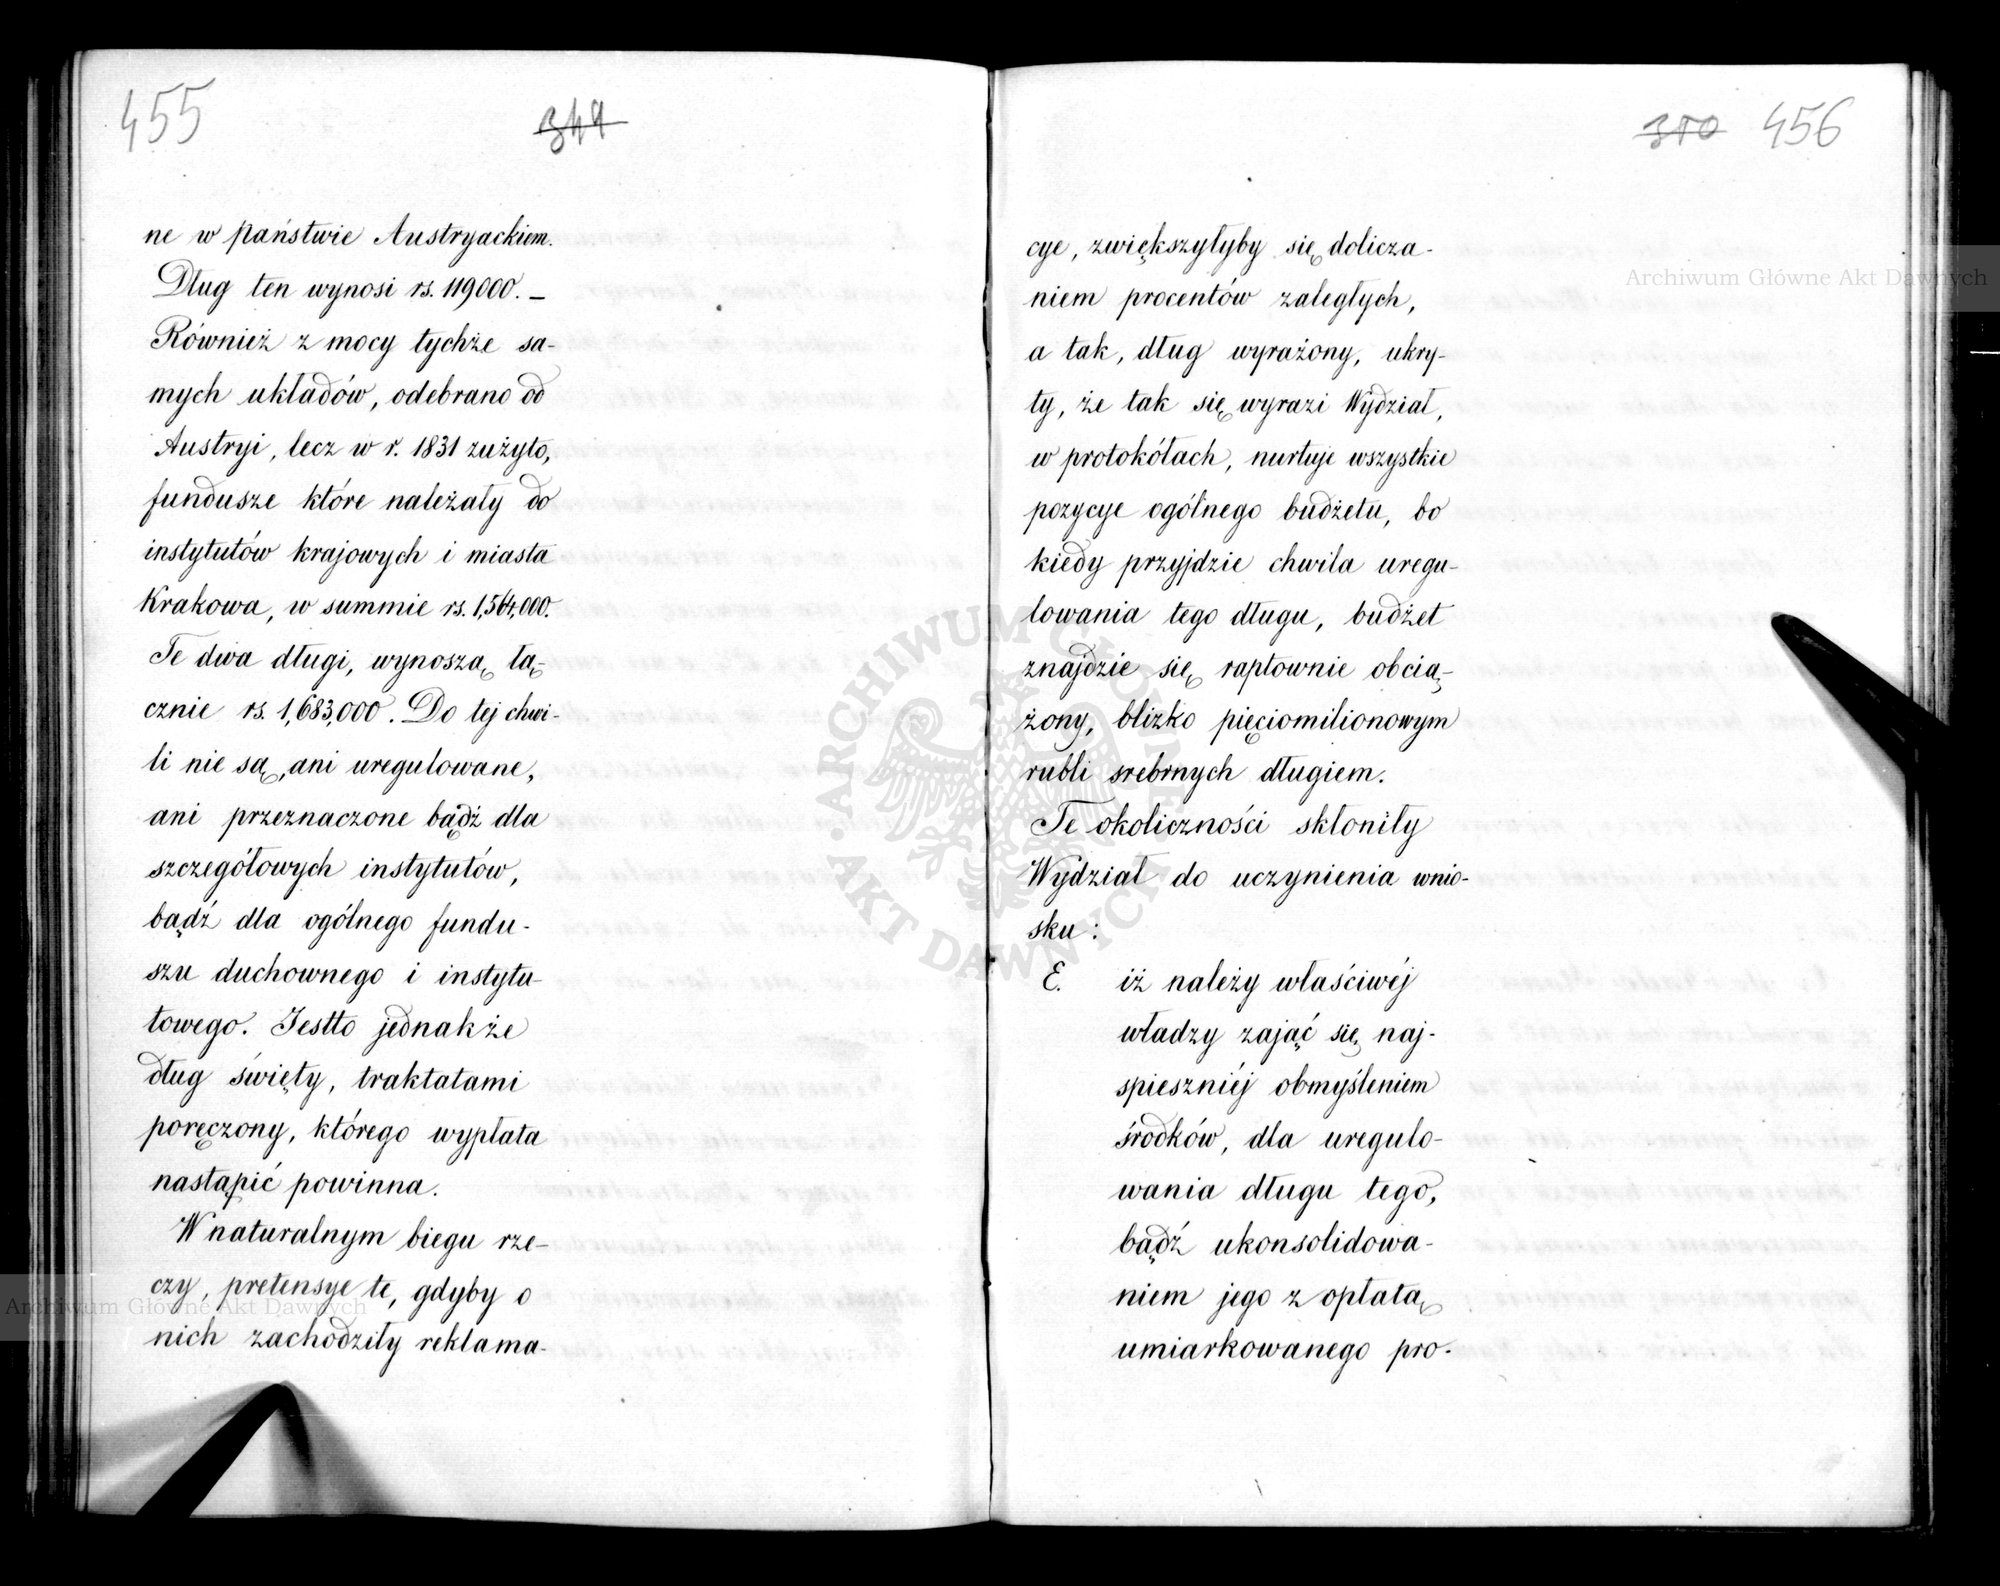 455
349
ne w państwie Austryackiem.
Dług ten wynosi rs. 119000. –
Również z mocy tychże sa-
mych układów, odebrano od
Austryi, lecz w r. 1831 zużyto,
fundusze które należały do
instytutów krajowych i miasta
Krakowa, w summie rs. 1,564,000.
Te dwa długi, wynoszą łą-
cznie rs. 1,683,000. Do tej chwi-
li nie są, ani uregulowane,
ani przeznaczone bądź dla
szczegółowych instytutów,
bądź dla ogólnego fundu-
szu duchownego i instytu-
towego. Jestto jednakże
dług święty, traktatami
poręczony, którego wypłata
nastąpić powinna.
W naturalnym biegu rze-
czy, pretensye te, gdyby o
nich zachodziły reklama-
350 456
cye, zwiększyłyby się dolicza-
niem procentów zaległych,
a tak, dług wyrażony, ukry-
ty, że tak się wyrazi Wydział,
w protokółach, nurtuje wszystkie
pozycye ogólnego budżetu, bo
kiedy przyjdzie chwila uregu-
lowania tego długu, budżet
znajdzie się raptownie obcią-
żony, blizko pięciomilionowym
rubli srebrnych długiem.
Te okoliczności skłoniły
Wydział do uczynienia wnio-
sku:
E. iż należy właściwéj
władzy zająć się naj-
spieszniéj obmyśleniem
środków, dla uregulo-
wania długu tego,
bądź ukonsolidowa-
niem jego z opłatą
umiarkowanego pro-
Archiwum Główne Akt Dawnych
Archiwum Główne Akt Dawnych
ARCHIWUM GŁÓWNE · AKT DAWNYCH ·